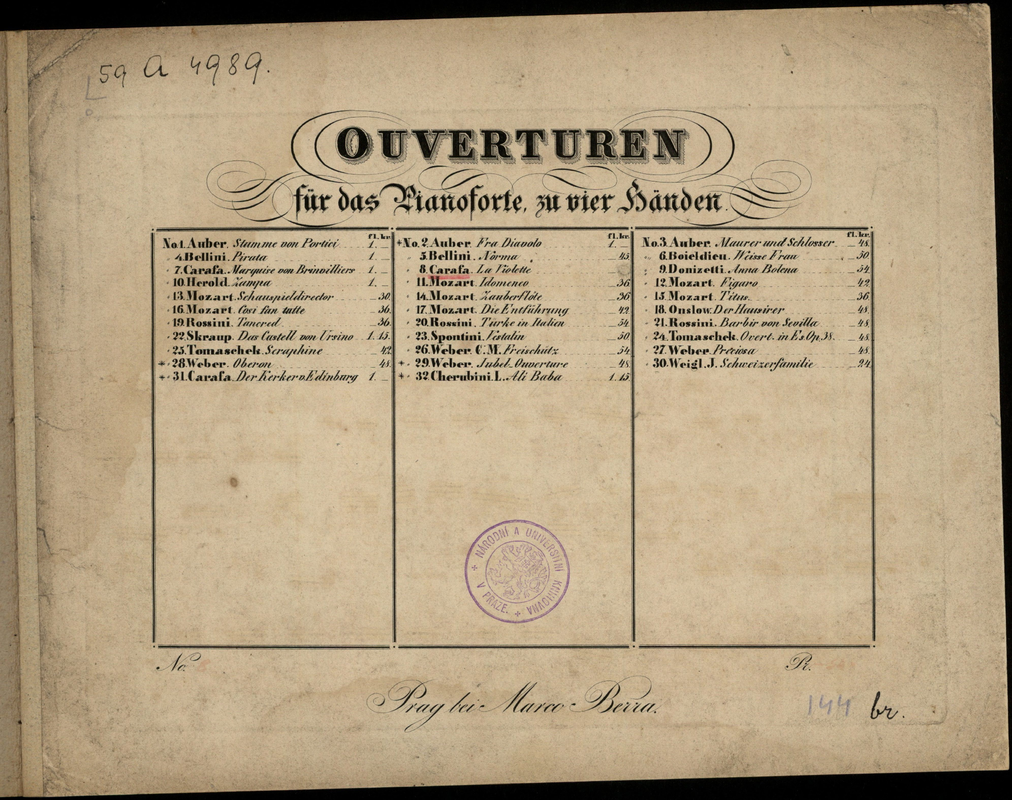 59 A 4989.
OUVERTUREN
für das Pianoforte, zu vier Händen.
fl. kr.
No 1. Auber. Stumme von Portici 1. _
" 4. Bellini. Pirata 1. _
" 7. Carafa. Marquise von Brinvilliers 1. _
" 10. Herold. Zampa 1. _
" 13. Mozart. Schauspieldirector _ 30.
" 16. Mozart. Cosi fan tutte 36.
" 19. Rossini. Tancred _ 36.
" 22. Skraup. Das Castell von Ursino 1. 15.
" 25. Tomaschek. Seraphine _ 42.
+ " 28. Weber. Oberon _ 48.
+ " 31. Carafa. Der Kerker v. Edinburg 1. _
fl. kr.
+ No. 2. Auber. Fra Diavolo 1. _
" 5. Bellini. Norma _ 45
" 8. Carafa. La Violette
" 11. Mozart. Idomeneo _ 36
" 14. Mozart. Zauberflöte _ 36
" 17. Mozart. Die Entführung _ 42.
" 20. Rossini. Türke in Italien _ 54.
" 23. Spontini. Vestalin _ 50
" 26. Weber. C. M. Freischütz _ 54
+ " 29. Weber. Jubel-Ouverture _ 48
+ " 32. Cherubini. L. Ali Baba 1. 15
fl. kr.
No. 3. Auber. Maurer und Schlosser _ 48.
" 6. Boieldieu. Weisse Frau _ 50
" 9. Donizetti. Anna Bolena _ 54.
" 12. Mozart. Figaro _ 42
" 15. Mozart. Titus _ 36
" 18. Onslow. Der Hausirer _ 48.
" 21. Rossini. Barbir von Sevilla _ 48.
" 24. Tomaschek. Overt. in Es Op. 38. _ 48.
" 27. Weber. Preciosa _ 48.
" 30. Weigl. J. Schweizerfamilie _ 24.
NÁRODNÍ A UNIVERSITNÍ KNIHOVNA
V PRAZE.
No.
Pr.
Prag bei Marco Berra.
144 br.